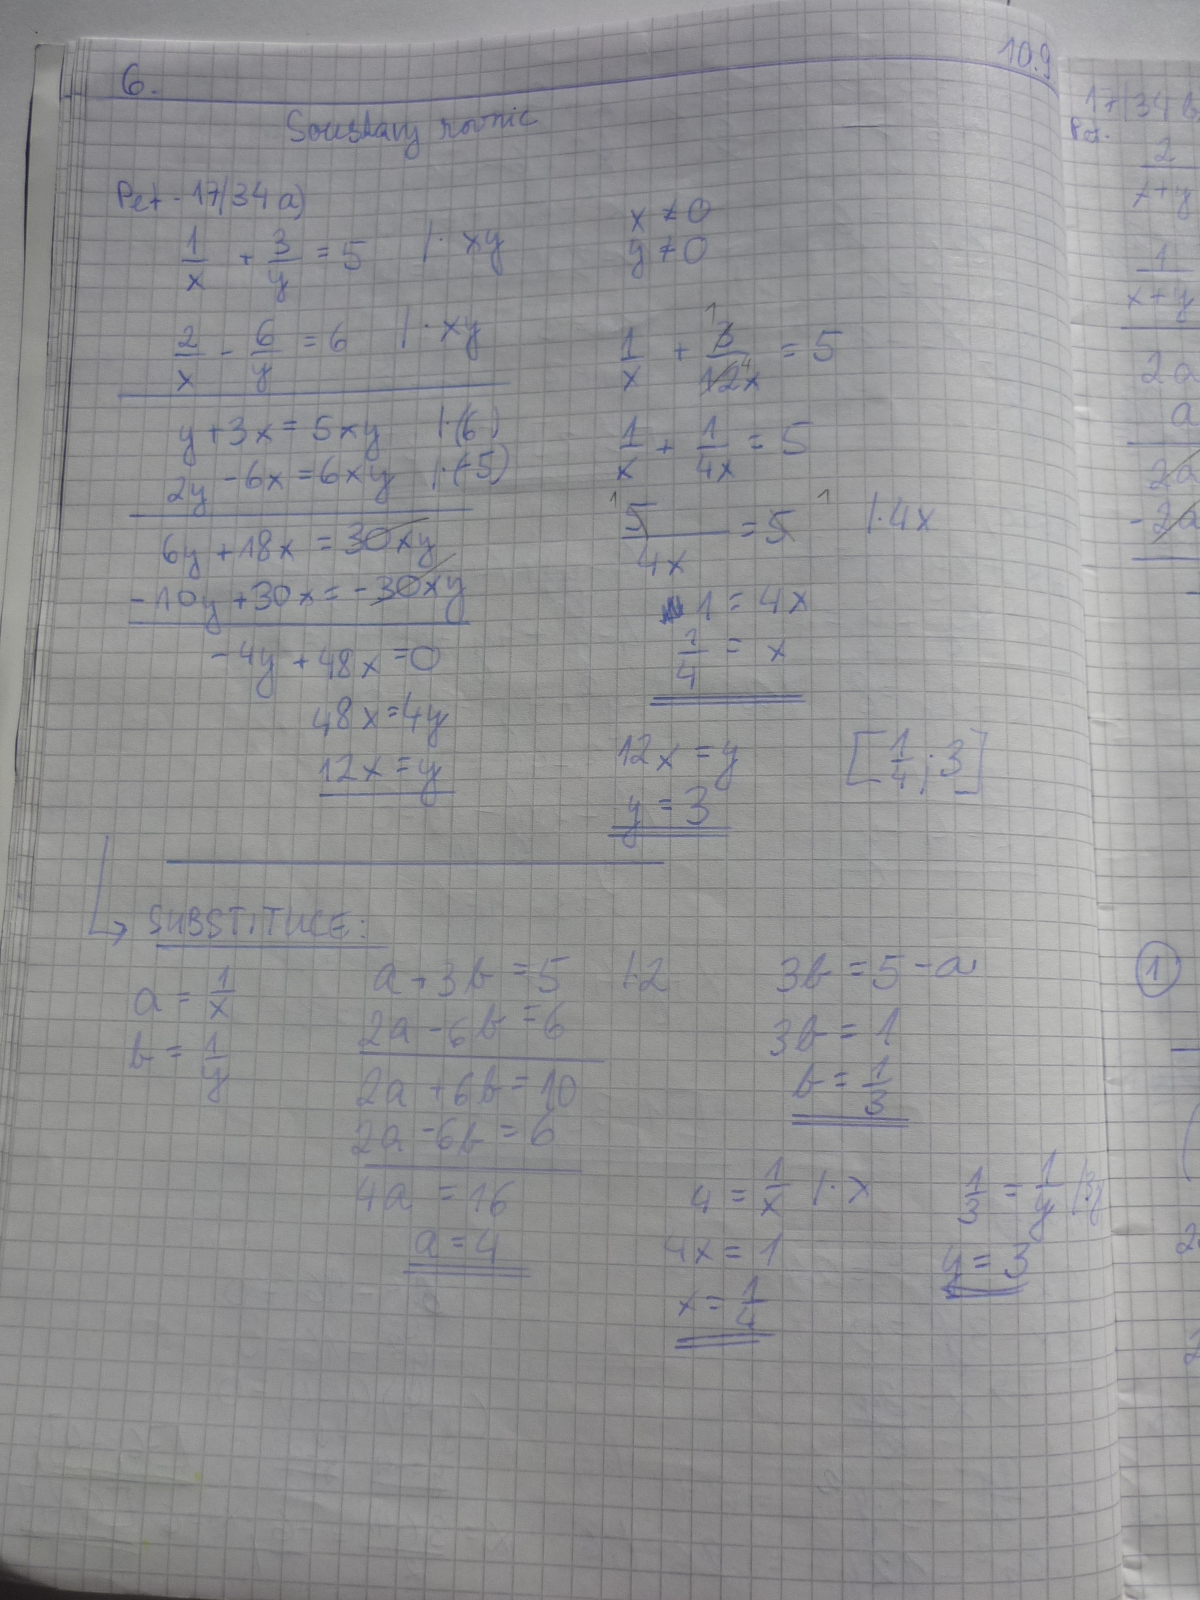 6.
10.9
Soustavy rovnic
Pet - 17/34 a)
1/x + 3/y = 5 /· xy
2/x - 6/y = 6 /· xy
y + 3x = 5xy /·(6)
2y - 6x = 6xy /·(-5)
6y + 18x = 30xy
-10y + 30x = -30xy
-4y + 48x = 0
48x = 4y
12x = y
x ≠ 0
y ≠ 0
1/x + 3/12x = 5
1/x + 1/4x = 5
5/4x = 5 /·4x
1 = 4x
1/4 = x
12x = y
y = 3
[1/4 ; 3]
↳ SUBSTITUCE:
a = 1/x
b = 1/y
a + 3b = 5 /·2
2a - 6b = 6
2a + 6b = 10
2a - 6b = 6
4a = 16
a = 4
3b = 5 - a
3b = 1
b = 1/3
4 = 1/x /· x
4x = 1
x = 1/4
1/3 = 1/y /3y
y = 3
17/34 b
2/x+y
1/x+y
2a
a
2a
-2a
1